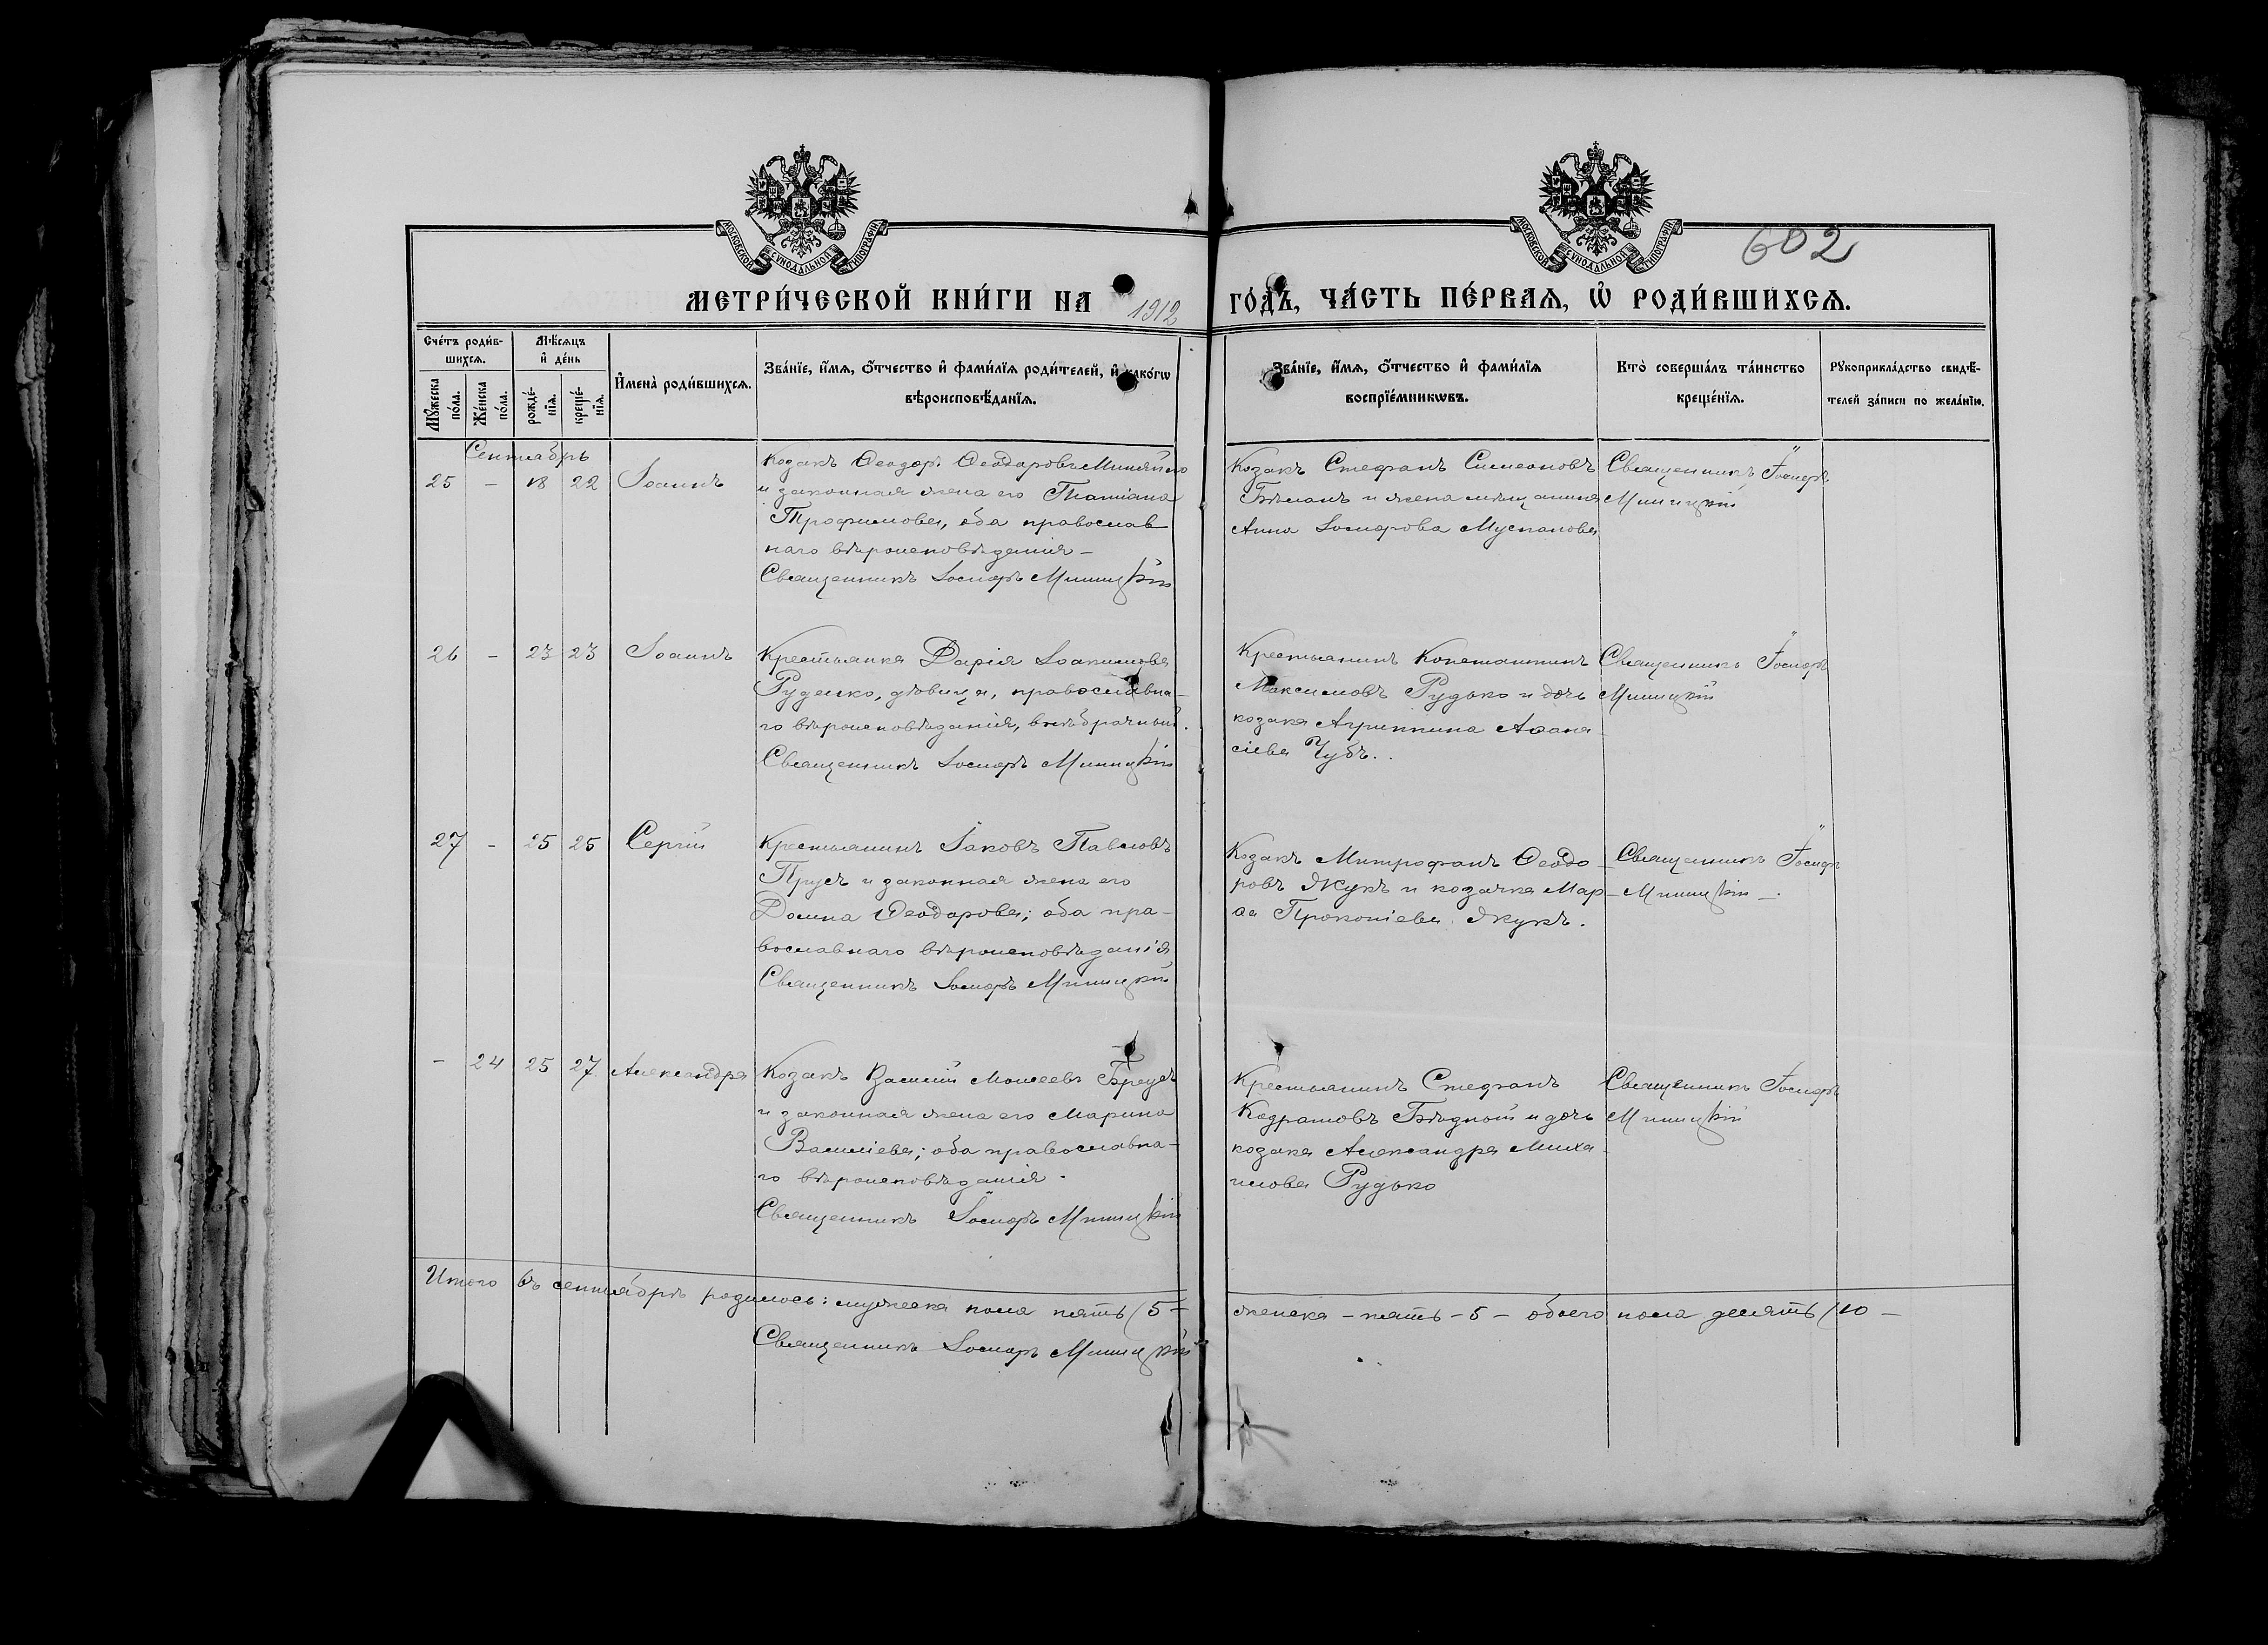 602
МОСКОВСКОЙ СѴНОДАЛЬНОЙ ТИПОГРАФІИ
МОСКОВСКОЙ СѴНОДАЛЬНОЙ ТИПОГРАФІИ
МЕТРИ́ЧЕСКОЙ КНИ́ГИ НА 1912 ГО́ДЪ, ЧА́СТЬ ПЕ́РВАѦ, Ѡ҆ РОДИ́ВШИХСѦ.
Сче́тъ роди́в-
шихсѧ.
Мꙋ́жеска по́ла.
Же́нска по́ла.
Мѣ́сѧцъ
и҆ де́нь
рожде́-
нїѧ.
креще́-
нїѧ.
И҆мена̀ роди́вшихсѧ.
Зва́нїе, и҆́мѧ, ѻ҆́тчество и҆ фами́лїѧ роди́телей, и҆ како́гѡ
вѣроисповѣ́данїѧ.
Зва́нїе, и҆́мѧ, ѻ҆́тчество и҆ фами́лїѧ
воспрїе́мникѡвъ.
Кто̀ соверша́лъ та́инство
креще́нїѧ.
Рꙋкоприкла́дство свидѣ́-
телей за́писи по жела́нїю.
Сентябрь
25 - 18 22 Іоаннъ
Козакъ Ѳеодоръ Ѳеодоровъ
и законная жена его Татіана
Трофимова, оба православ
наго вѣроисповѣданія –
Священникъ Іосифъ
Козакъ Стефанъ Симеоновъ
и жена мѣщанина
Анна Іосифова
Священникъ Іосифъ
26 - 23 23 Іоаннъ
Крестьянка Дарія Іоакимова
Руденко, дѣвица, православна-
го вѣроисповѣданія, внѣбрачный.
Священникъ Іосифъ
Крестьянинъ Константинъ
Максимовъ Рудько и дочь
козака Агриппина Аѳана
сіева Чубъ..
Священникъ Іосифъ
27 - 25 25 Сергій
Крестьянинъ Іаковъ Павловъ
Прусъ и законная жена его
Домна Ѳеодорова; оба пра-
вославнаго вѣроисповѣданія
Священникъ Іосифъ
Козакъ Митрофанъ Ѳеодо-
ровъ Якукъ и козачка Мар-
ѳа Прокопіева Якукъ.
Священникъ Іосифъ
- 24 25 27 Александра
Козакъ Василій Моисеевъ
и законная жена его Марина
Василіева; оба православна-
го вѣроисповѣданія.
Священникъ Іосифъ
Крестьянинъ Стефанъ
Кодратовъ Бѣдный и дочь
козака Александра Миха
илова Рудько
Священникъ Іосифъ
Итого въ сентябрѣ родилось: мужеска пола пять (5 – женска – пять – 5 – обоего пола десять (10 –
Священникъ Іосифъ